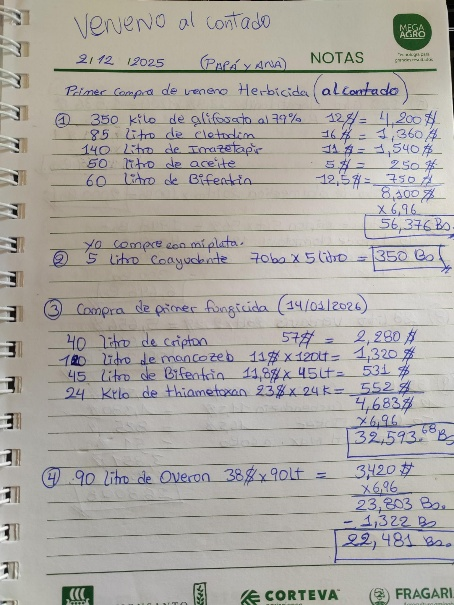 Veneno al contado
MEGA AGRO
2/12/2025 (PAPÁ y ANA) NOTAS
Primer compra de veneno Herbicida (al contado)
① 350 kilo de glifosato al 79% 12$ = 4,200$
85 litro de cletodin 16$ = 1,360$
140 litro de Imazetapir 11$ = 1,540$
50 litro de aceite 5$ = 250$
60 litro de Bifentrin 12,5$ = 750$
8,100$
x 6,96
56,376 Bs.
yo compre con mi plata.
② 5 litro coayudante 70bs x 5 litro = 350 Bs
③ Compra de primer fungicida (14/01/2026)
40 litro de cripton 57$ = 2,280$
120 litro de mancozeb 11$ x 120lt = 1,320$
45 litro de Bifentrin 11,8$ x 45lt = 531$
24 kilo de thiametoxan 23$ x 24k = 552$
4,683$
x 6,96
32,593.68 Bs
④ 90 litro de Overon 38$ x 90Lt = 3,420$
x 6,96
23,803 Bs.
- 1,322 Bs
22,481 Bs.
CORTEVA FRAGARI